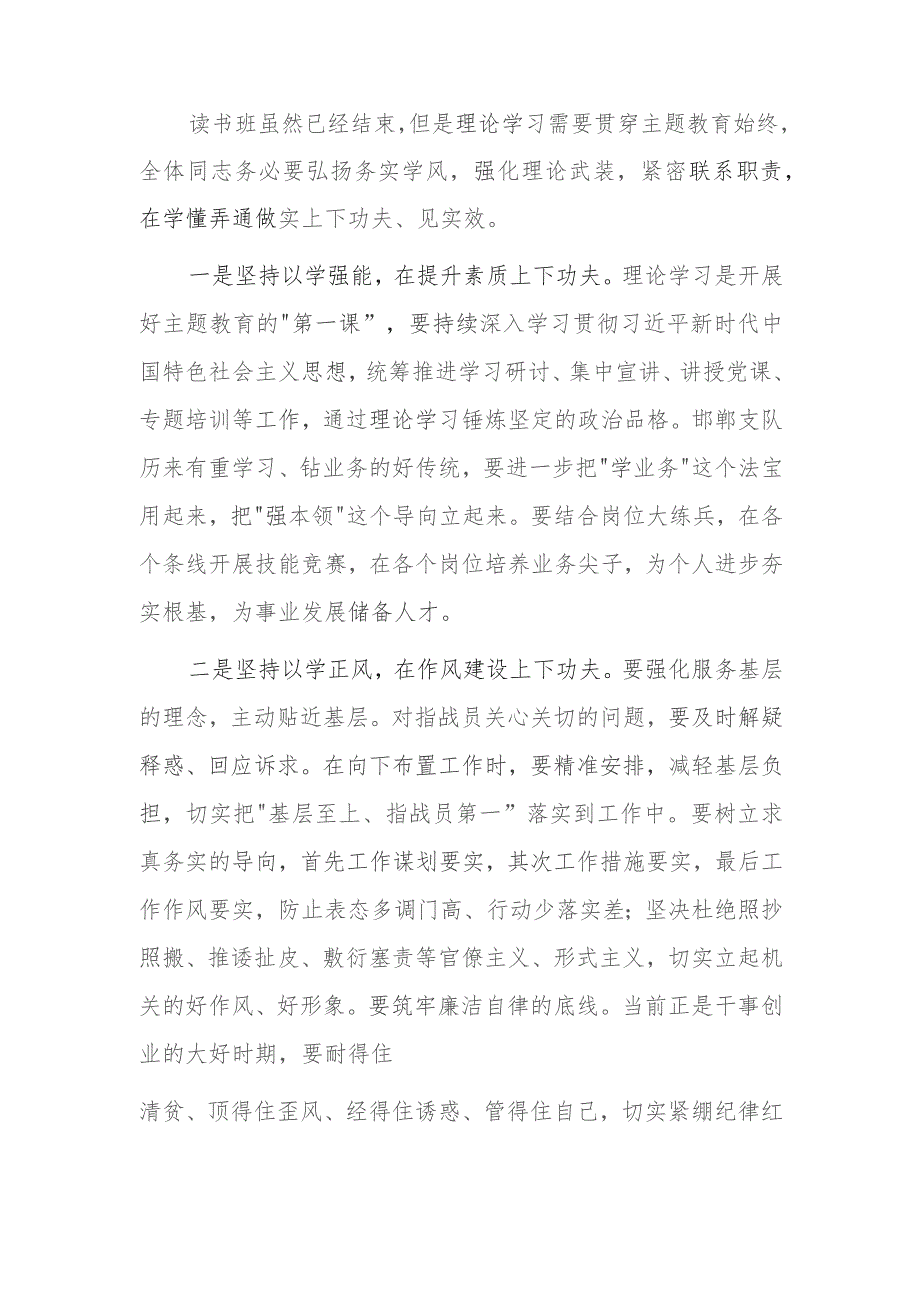 读书班虽然已经结束，但是理论学习需要贯穿主题教育始终，
全体同志务必要弘扬务实学风，强化理论武装，紧密联系职责，
在学懂弄通做实上下功夫、见实效。
一是坚持以学强能，在提升素质上下功夫。理论学习是开展
好主题教育的"第一课”，要持续深入学习贯彻习近平新时代中
国特色社会主义思想，统筹推进学习研讨、集中宣讲、讲授党课、
专题培训等工作，通过理论学习锤炼坚定的政治品格。邯郸支队
历来有重学习、钻业务的好传统，要进一步把"学业务"这个法宝
用起来，把"强本领"这个导向立起来。要结合岗位大练兵，在各
个条线开展技能竞赛，在各个岗位培养业务尖子，为个人进步夯
实根基，为事业发展储备人才。
二是坚持以学正风，在作风建设上下功夫。要强化服务基层
的理念，主动贴近基层。对指战员关心关切的问题，要及时解疑
释惑、回应诉求。在向下布置工作时，要精准安排，减轻基层负
担，切实把"基层至上、指战员第一”落实到工作中。要树立求
真务实的导向，首先工作谋划要实，其次工作措施要实，最后工
作作风要实，防止表态多调门高、行动少落实差；坚决杜绝照抄
照搬、推诿扯皮、敷衍塞责等官僚主义、形式主义，切实立起机
关的好作风、好形象。要筑牢廉洁自律的底线。当前正是干事创
业的大好时期，要耐得住
清贫、顶得住歪风、经得住诱惑、管得住自己，切实紧绷纪律红